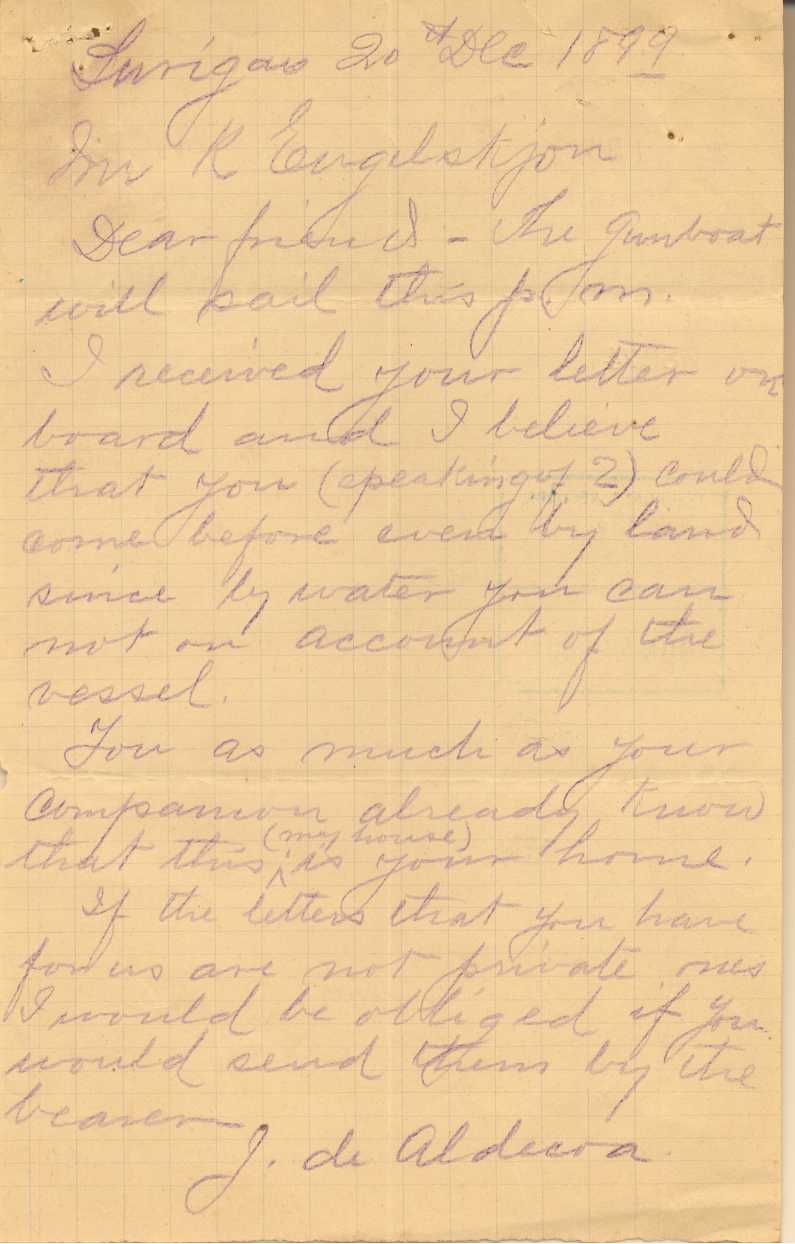 Surigao 20th Dec 1899
Mr K Engelskjon
Dear friend - The gunboat
will sail this p.m.
I received your letter on
board and I believe
that you (speaking of 2) could
come before even by land
since by water you can
not on account of the
vessel.
You as much as your
companion already know
that this (my house) is your home.
If the letters that you have
for us are not private ones
I would be obliged if you
would send them by the
bearer
J. de Aldecoa.